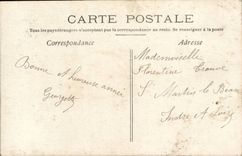 CARTE POSTALE
Tous les pays étrangers n'acceptent pas la correspondance au recto. Se renseigner à la poste
Correspondance
Adresse
Bonne et heureuse année
Mademoiselle
Florentine
St Martin le Beau
Indre et Loire